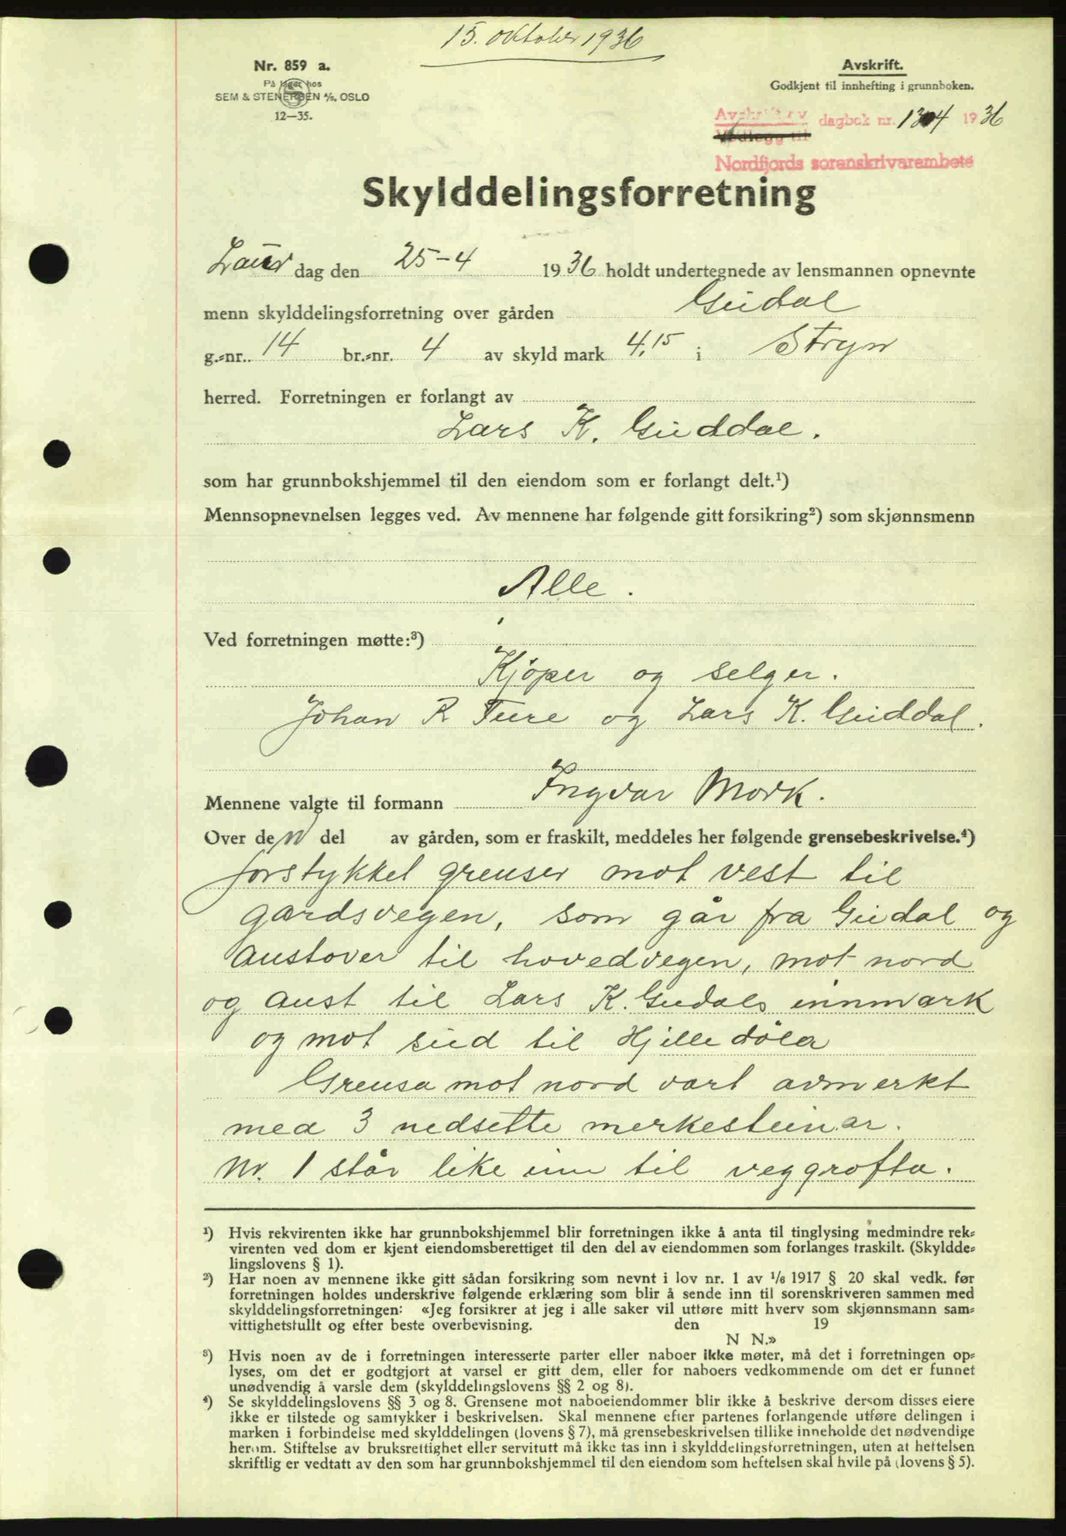 15. oktober 1936
Nr. 859 a.
På lager hos
SEM & STENERSEN A/S, OSLO
12—35.
Avskrift.
Godkjent til innhefting i grunnboken.
Avskrift av
Vedlegg til
dagbok nr. 1304 1936
Nordfjords sorenskrivarembete
Skylddelingsforretning
Laur dag den 25-4 1936 holdt undertegnede av lensmannen opnevnte
menn skylddelingsforretning over gården Gudal
g.-nr. 14 br.-nr. 4 av skyld mark 4,15 i Stryn
herred. Forretningen er forlangt av
Lars K. Guddal.
som har grunnbokshjemmel til den eiendom som er forlangt delt.¹)
Mennsopnevnelsen legges ved. Av mennene har følgende gitt forsikring²) som skjønnsmenn
Alle.
Ved forretningen møtte:³)
Kjøper og selger.
Johan R Ture og Lars K. Guddal.
Mennene valgte til formann Ingvar Mork.
Over den del av gården, som er fraskilt, meddeles her følgende grensebeskrivelse.⁴)
Jorstykket grenser mot vest til
gardsvegen, som går fra Gudal og
austover til hovedvegen, mot nord
og aust til Lars K. Gudals innmark
og mot sud til Hjelledøla
Grensa mot nord vart avmerkt
med 3 nedsette merkesteinar.
Nr. 1 står like inn til veggrofta.
¹) Hvis rekvirenten ikke har grunnbokshjemmel blir forretningen ikke å anta til tinglysing medmindre rek-
virenten ved dom er kjent eiendomsberettiget til den del av eiendommen som forlanges fraskilt. (Skyldde-
lingslovens § 1).
²) Har noen av mennene ikke gitt sådan forsikring som nevnt i lov nr. 1 av 1/6 1917 § 20 skal vedk. før
forretningen holdes underskrive følgende erklæring som blir å sende inn til sorenskriveren sammen med
skylddelingsforretningen: «Jeg forsikrer at jeg i alle saker vil utføre mitt hverv som skjønnsmann sam-
vittighetsfullt og efter beste overbevisning. den 19
N N.»
³) Hvis noen av de i forretningen interesserte parter eller naboer ikke møter, må det i forretningen op-
lyses, om det er godtgjort at varsel er gitt dem, eller for naboers vedkommende om det er funnet
unødvendig å varsle dem (skylddelingslovens §§ 2 og 8).
⁴) Se skylddelingslovens §§ 3 og 8. Grensene mot naboeiendommer blir ikke å beskrive dersom disses eiere
ikke er tilstede og samtykker i beskrivelsen. Skal mennene efter partenes forlangende utføre delingen i
marken i forbindelse med skylddelingen (lovens § 7), må grensebeskrivelsen tillike inneholde det nødvendige
herom. Stiftelse av bruksrettighet eller servitutt må ikke tas inn i skylddelingsforretningen, uten at heftelsen
skriftlig er vedtatt av den som har grunnbokshjemmel til den eiendom som heftelsen skal hvile på (lovens § 5).